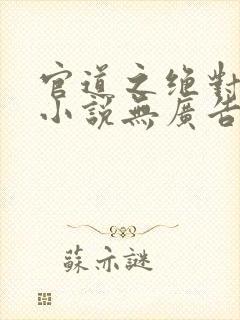 官道之绝對
小說無廣告
蘇亦謎